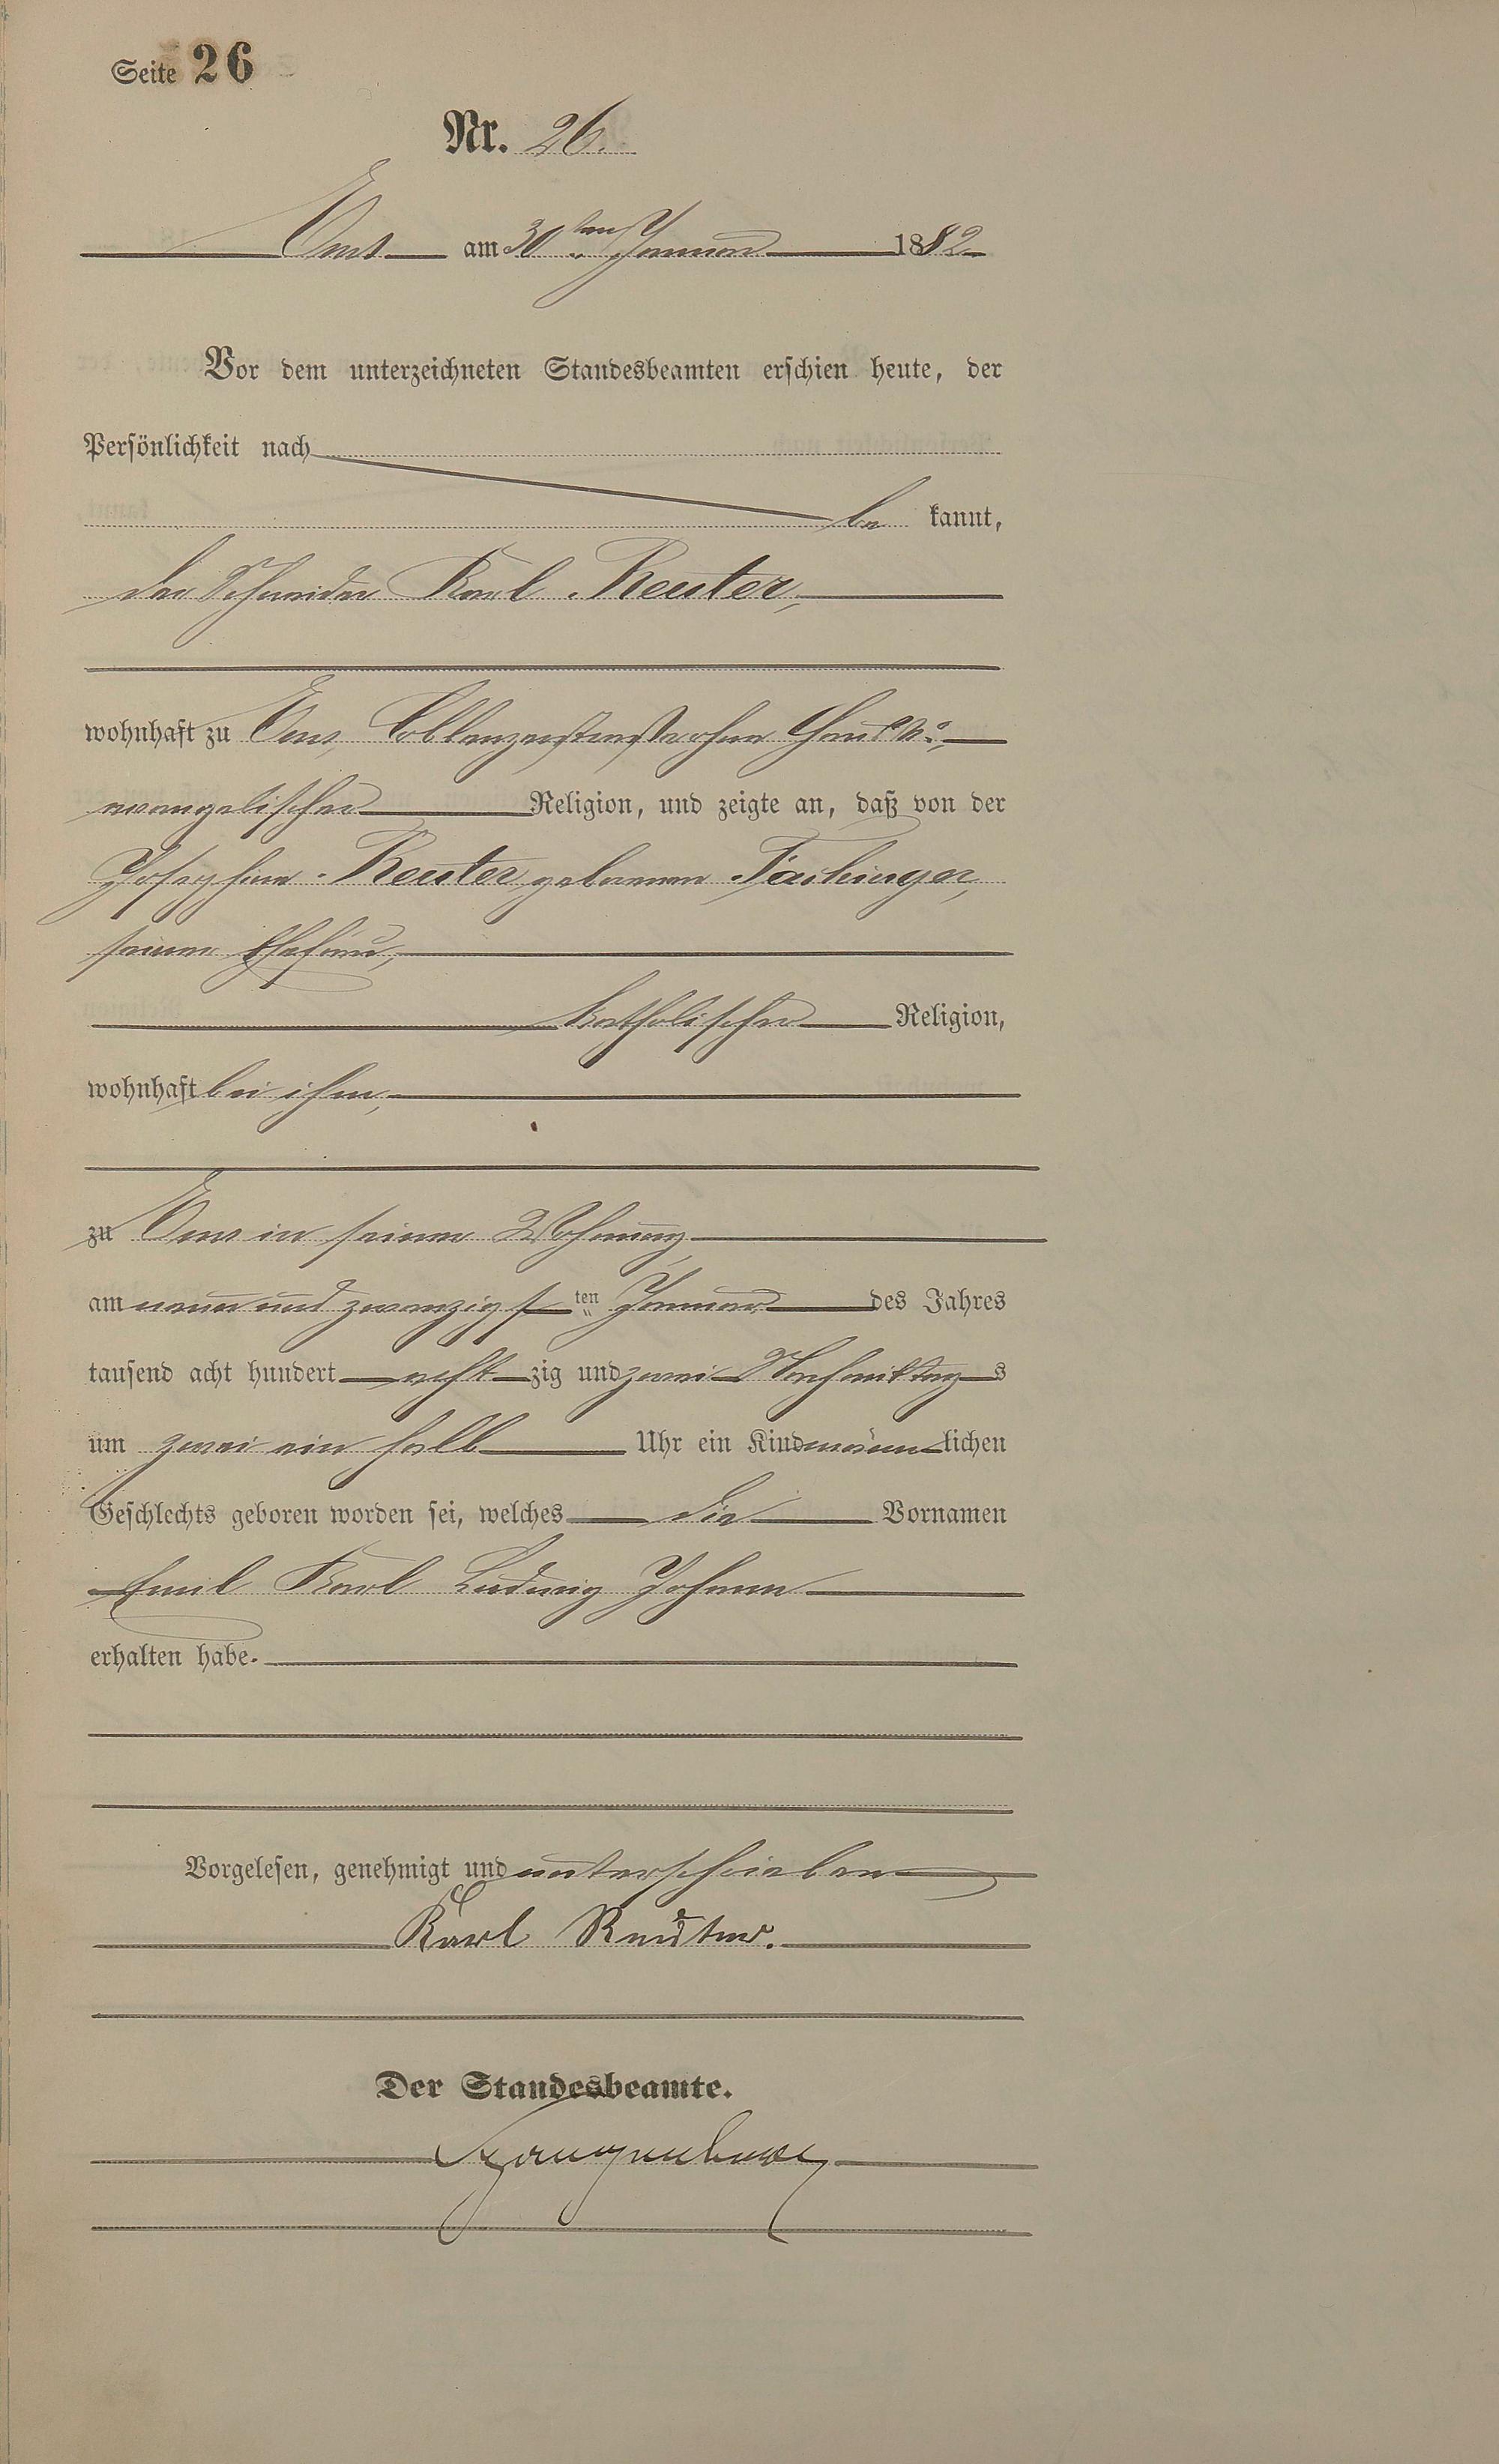 Seite 26
Nr. 26.
Ems am 30ten Januar 1882
Vor dem unterzeichneten Standesbeamten erschien heute, der
Persönlichkeit nach
be kannt,
der Schneider Karl Reuter,
wohnhaft zu Ems, Coblenzerstraße ohne Haus No.,
evangelischer Religion, und zeigte an, daß von der
Josephine Reuter, geborenen Fachinger,
seiner Ehefrau,
katholischer Religion,
wohnhaft bei ihm,
zu Ems in seiner Wohnung
am neun und zwanzigsten Januar des Jahres
tausend acht hundert acht zig und zwei Nachmittags
um zwei ein halb Uhr ein Kind männlichen
Geschlechts geboren worden sei, welches die Vornamen
Emil Karl Ludwig Johann
erhalten habe.
Vorgelesen, genehmigt und unterschrieben
Karl Reuter.
Der Standesbeamte.